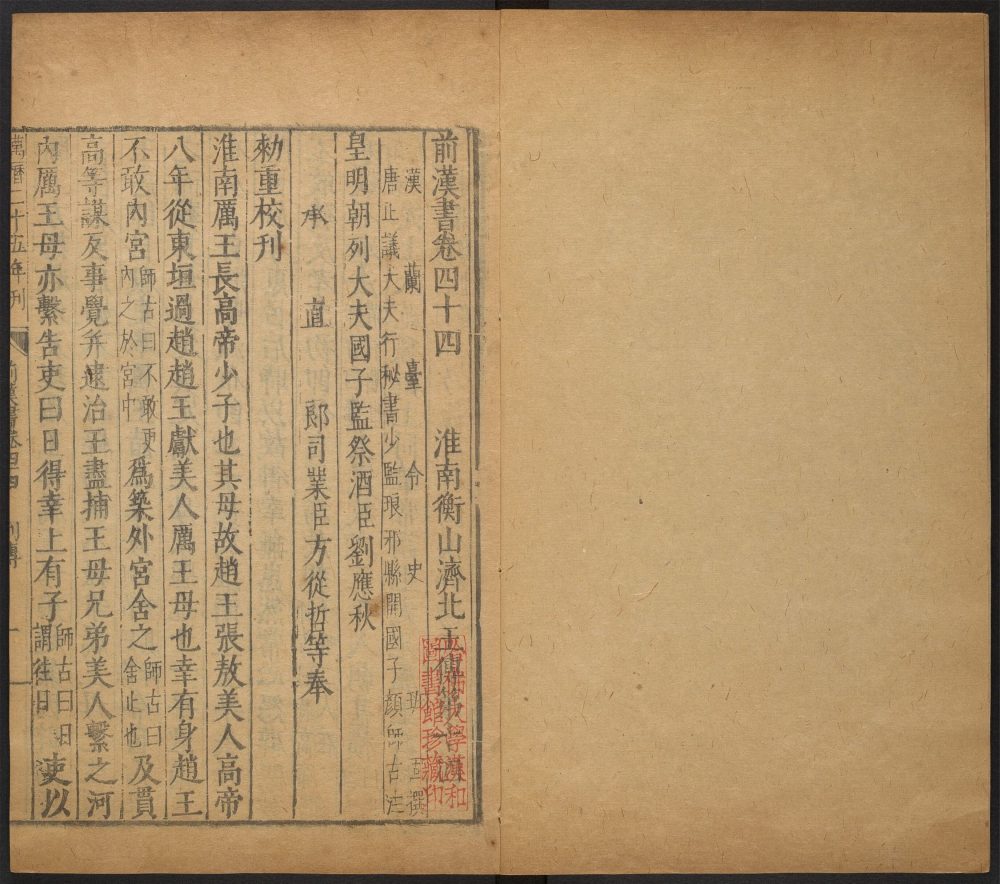 前漢書卷四十四 淮南衡山濟北王傳第十四
漢蘭臺令史班固撰
唐正議大夫行秘書少監琅邪縣開國子顏師古注
皇明朝列大夫國子監祭酒臣劉應秋
承直郎司業臣方從哲等奉
勅重校刊
淮南厲王長高帝少子也其母故趙王張敖美人高帝
八年從東垣過趙趙王獻美人厲王母也幸有身趙王
不敢內宮師古曰不敢更內之於宮中爲築外宮舍之師古曰舍止也及貫
高等謀反事覺并逮治王盡捕王母兄弟美人繫之河
內厲王母亦繫告吏曰日得幸上有子師古曰日謂往日吏以
萬曆二十五年刊 前漢書卷四十四 列傳 一
哈佛大學漢和圖書館珍藏印